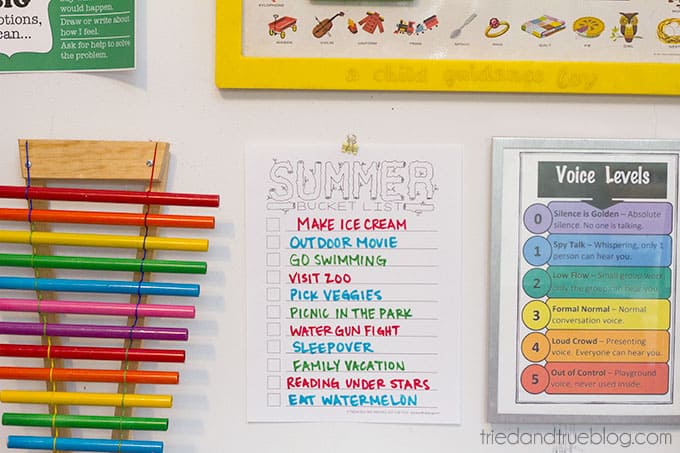 BIG
options,
can...
Draw or write about
how I feel.
Ask for help to solve
the problem.
XYLOPHONE
WAGON
VIOLIN
UNIFORM
TRAIN
SPOON
RING
QUILT
PIE
OWL
a child guidance toy
SUMMER
BUCKET LIST
MAKE ICE CREAM
OUTDOOR MOVIE
GO SWIMMING
VISIT ZOO
PICK VEGGIES
PICNIC IN THE PARK
WATER GUN FIGHT
SLEEPOVER
FAMILY VACATION
READING UNDER STARS
EAT WATERMELON
Voice Levels
0 Silence is Golden – Absolute
silence. No one is talking.
1 Spy Talk – Whispering, only 1
person can hear you.
2 Low Flow – Small group work,
only the group can hear you.
3 Formal Normal – Normal
conversation voice.
4 Loud Crowd – Presenting
voice. Everyone can hear you.
5 Out of Control – Playground
voice, never used inside.
triedandtrueblog.com